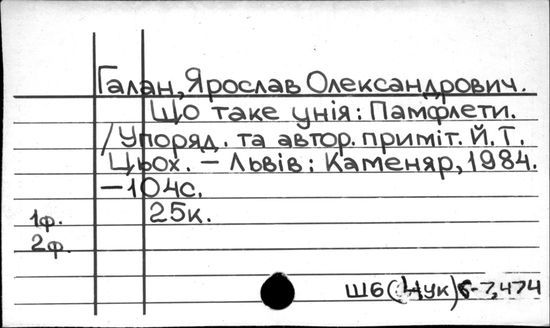 Галан, Ярослав Олександрович.
Що таке унія: Памфлети.
/Упоряд. та автор. приміт. Й. Т.
Цьох. – Львів: Каменяр, 1984.
– 104с.
25к.
1ф.
2ф.
Ш6(4Ук)6-7,474